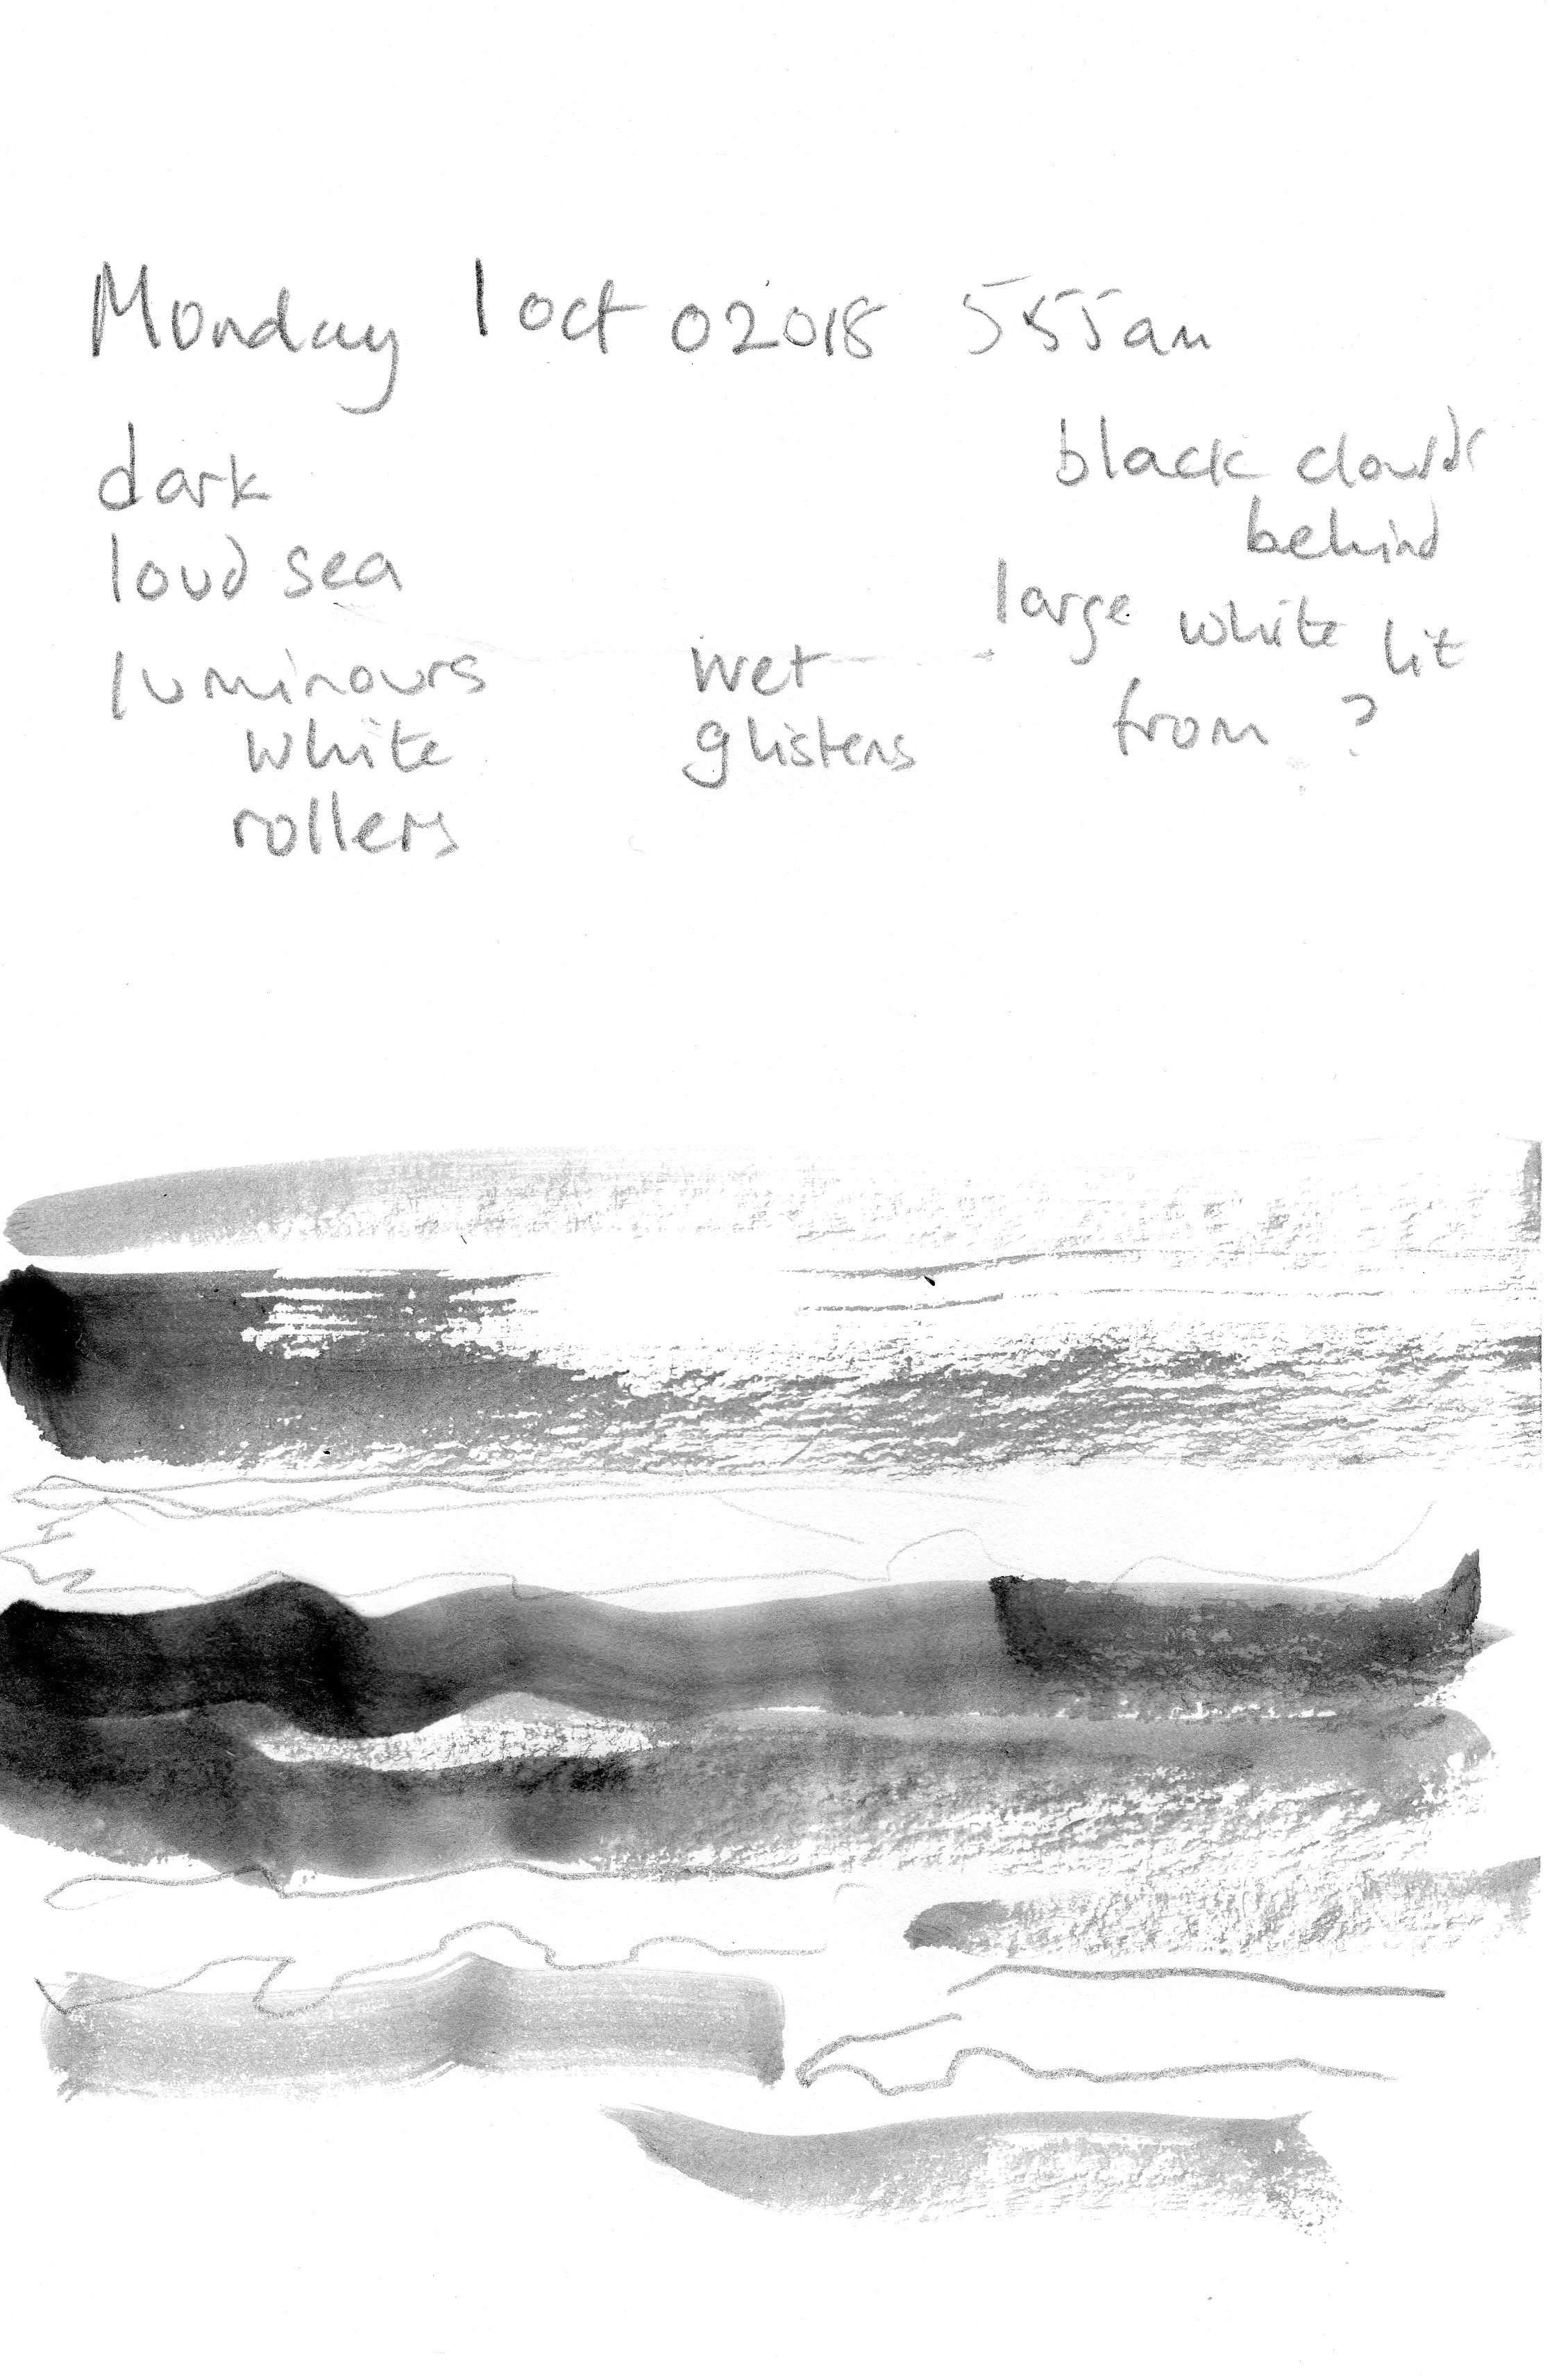 Monday 1 oct 02018 555am
dark
loud sea
luminours
white
rollers
wet
glistens
black clouds
behind
large white lit
from ?